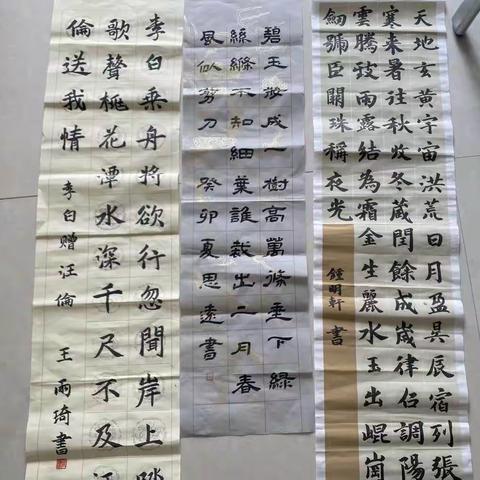 天地玄黃宇宙洪荒日月盈昃辰宿列張
寒來暑往秋收冬藏閏餘成歲律呂調陽
雲騰致雨露結為霜金生麗水玉出崐崗
劒號臣闕珠稱夜光
鍾明軒 書
碧玉妝成一樹高萬條垂下綠
絲絛不知細葉誰裁出二月春
風似剪刀 癸卯夏思遠書
李白乘舟將欲行忽聞岸上踏
歌聲桃花潭水深千尺不及汪
倫送我情 李白贈汪倫 王雨琦書